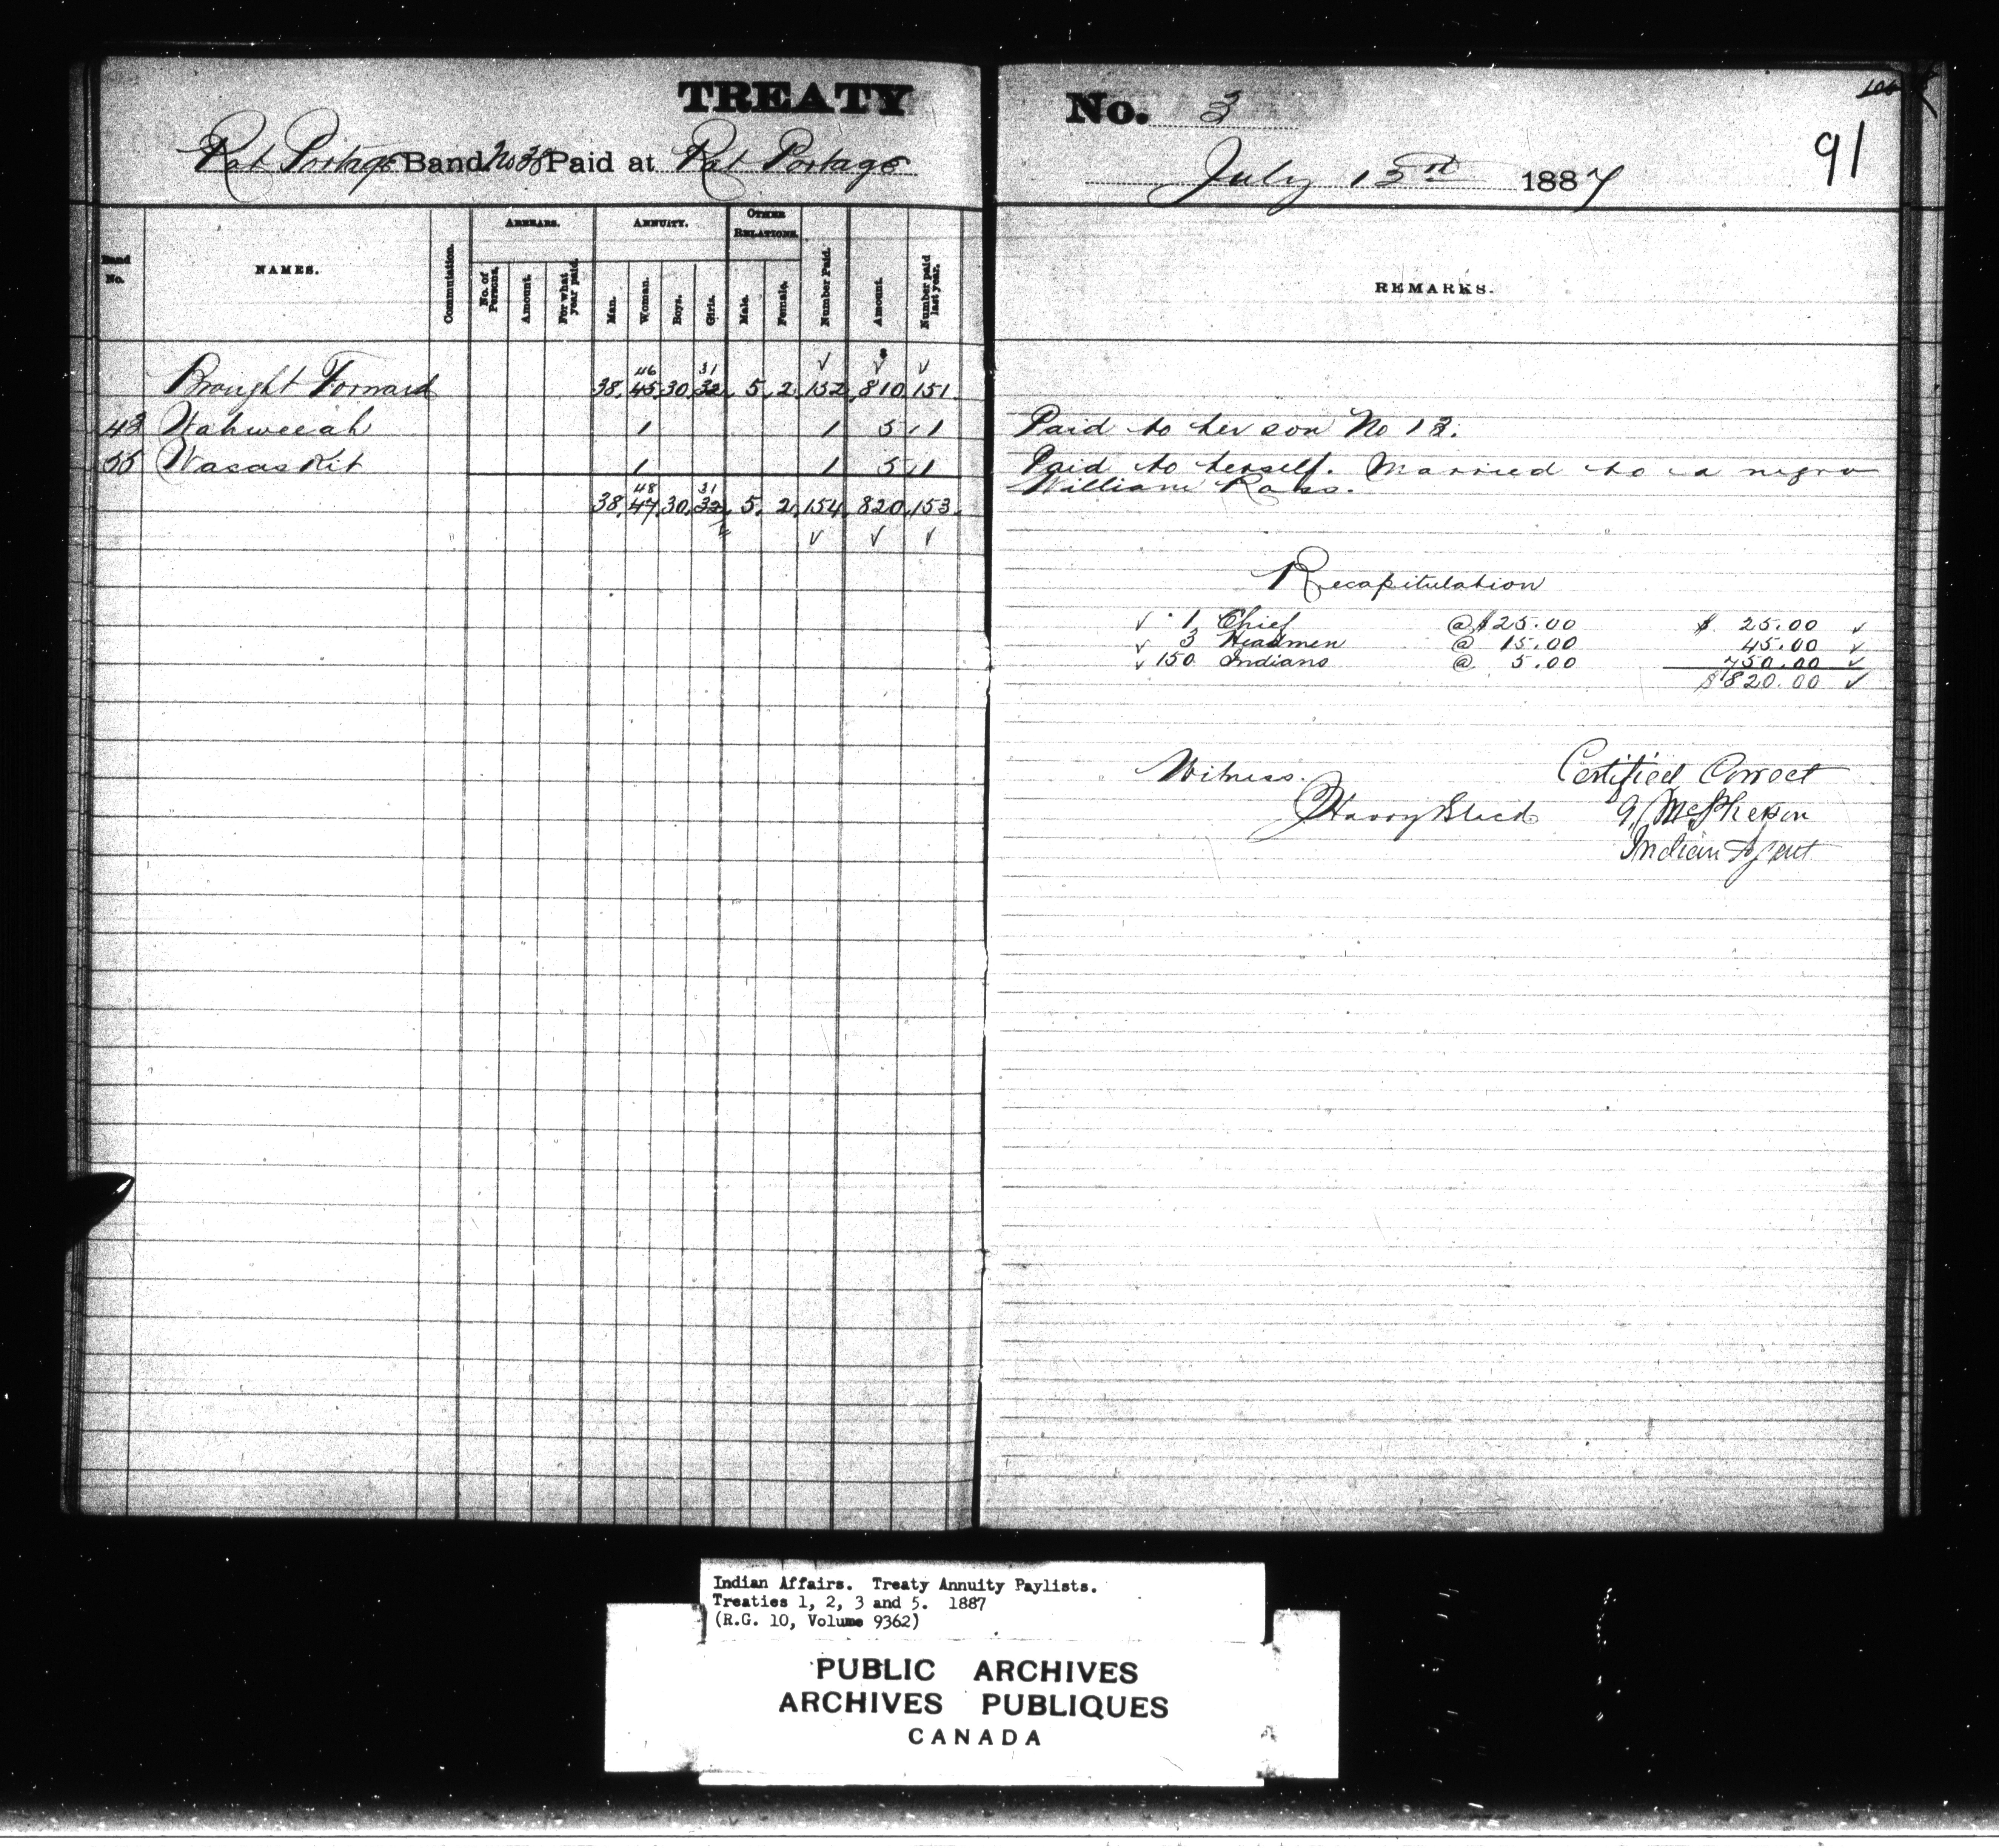 TREATY No. 3
91
Rat Portage Band No 38 Paid at Rat Portage July 13rd 1887
Band No. NAMES. Commutation. ARREARS. No. of Persons. Amount. For what year paid. ANNUITY. Man. Woman. Boys. Girls. OTHER RELATIONS. Male. Female. Number Paid. Amount. Number paid last year. REMARKS.
46 31
Brought Forward 38. 45. 30. 32. 5. 2. 152. 810. 151.
43 Wahweeah 1 1 5. 1 Paid to her son No 13.
55 Wasaskit 1 1 5. 1 Paid to herself. Married to a negro
William Ross.
48 31
38. 47. 30. 32. 5. 2. 154. 820. 153.
Recapitulation
✓ 1 Chief @ $25.00 $ 25.00 ✓
✓ 3 Headmen @ 15.00 45.00 ✓
✓ 150 Indians @ 5.00 750.00 ✓
$820.00 ✓
Witness. Certified Correct
Harry McPherson
Indian Agent
Indian Affairs. Treaty Annuity Paylists.
Treaties 1, 2, 3 and 5. 1887
(R.G. 10, Volume 9362)
PUBLIC ARCHIVES
ARCHIVES PUBLIQUES
CANADA